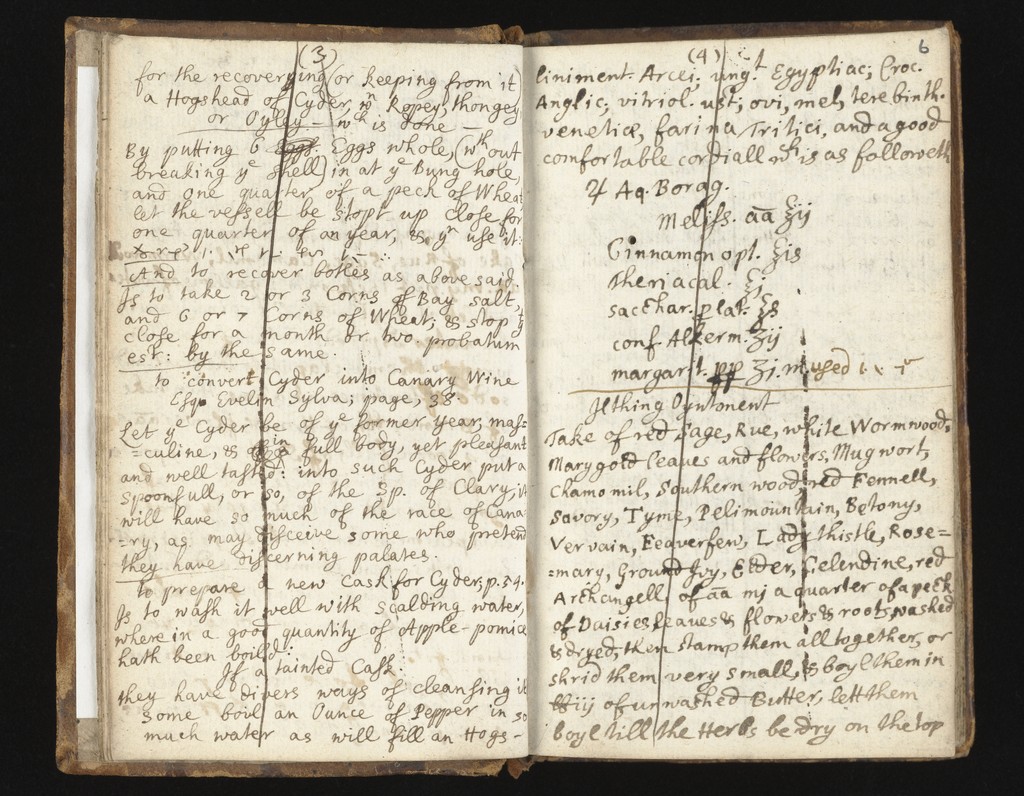 (3)
for the recovery̶ing (or keeping from it)
a Hogshead of Cyder, wn Ropey, thongey
or Oyley - wch is done -
By putting 6 Eggs. Eggs whole, (wthout
breaking ye shell) in at ye bung hole,
and one quarter of a peck of Wheat
let the vessell be stopt up close for
one quarter of an year, & yn use it:
And to recover botles as above said.
Js to take 2 or 3 Corns of Bay salt,
and 6 or 7 Corns of Wheat; & stop
close for a month or two. probatum
est: by the same.
to convert Cyder into Canary Wine
Esqr Evelin Sylva; page, 38
Let ye Cyder be of ye former year, mas=
=culine, & in full body, yet pleasant
and well tasted: into such Cyder put a
spoonfull, or so, of the Sp. of Clary, it
will have so much of the race of Cana
=ry, as may disceive some who pretend
they have discerning palates.
to prepare a new Cask for Cyder, p. 34.
Js to wash it well with scalding water,
where in a good quantity of Apple-pomice
hath been boild:
Jf a tainted Cask
they have divers ways of cleansing it
some boil an Ounce of Pepper in so
much water as will fill an Hogs-
(4)
6
liniment. Arcei; ungt Egyptiac; Croc.
Anglic; vitriol. ust; ovi, mel, terebinth.
venetiæ, farina Tritici, and a good
comfortable cordiall wch is as followeth
♃ Aq. Borag.
Meliss. aā ℥ij
Cinnamon opt. ℥is
theriacal. ℥j
sacchar. plat. ℥s
conf Alkerm. ʒij
margart. pp ʒj. m. used
Jtching Oyntonent
Take of red Sage, Rue, white Wormwood,
Marygold leaves and flowers, Mugwort,
Chamomil, Southern wood, red Fennell,
Savory, Tyme, Pelimountain, Betony,
Vervain, Feaverfew, Lady thistle, Rose=
=mary, Ground Jvy, Elder, Celendine, red
Archangell, of aā mj a quarter of a peck
of Daisies, leaves & flowers & roots, washed
& dryed, then stamp them all together, or
shrid them very small, & boyl them in
℔iij of unwashed Butter, lett them
boyl till the Herbs be dry on the top